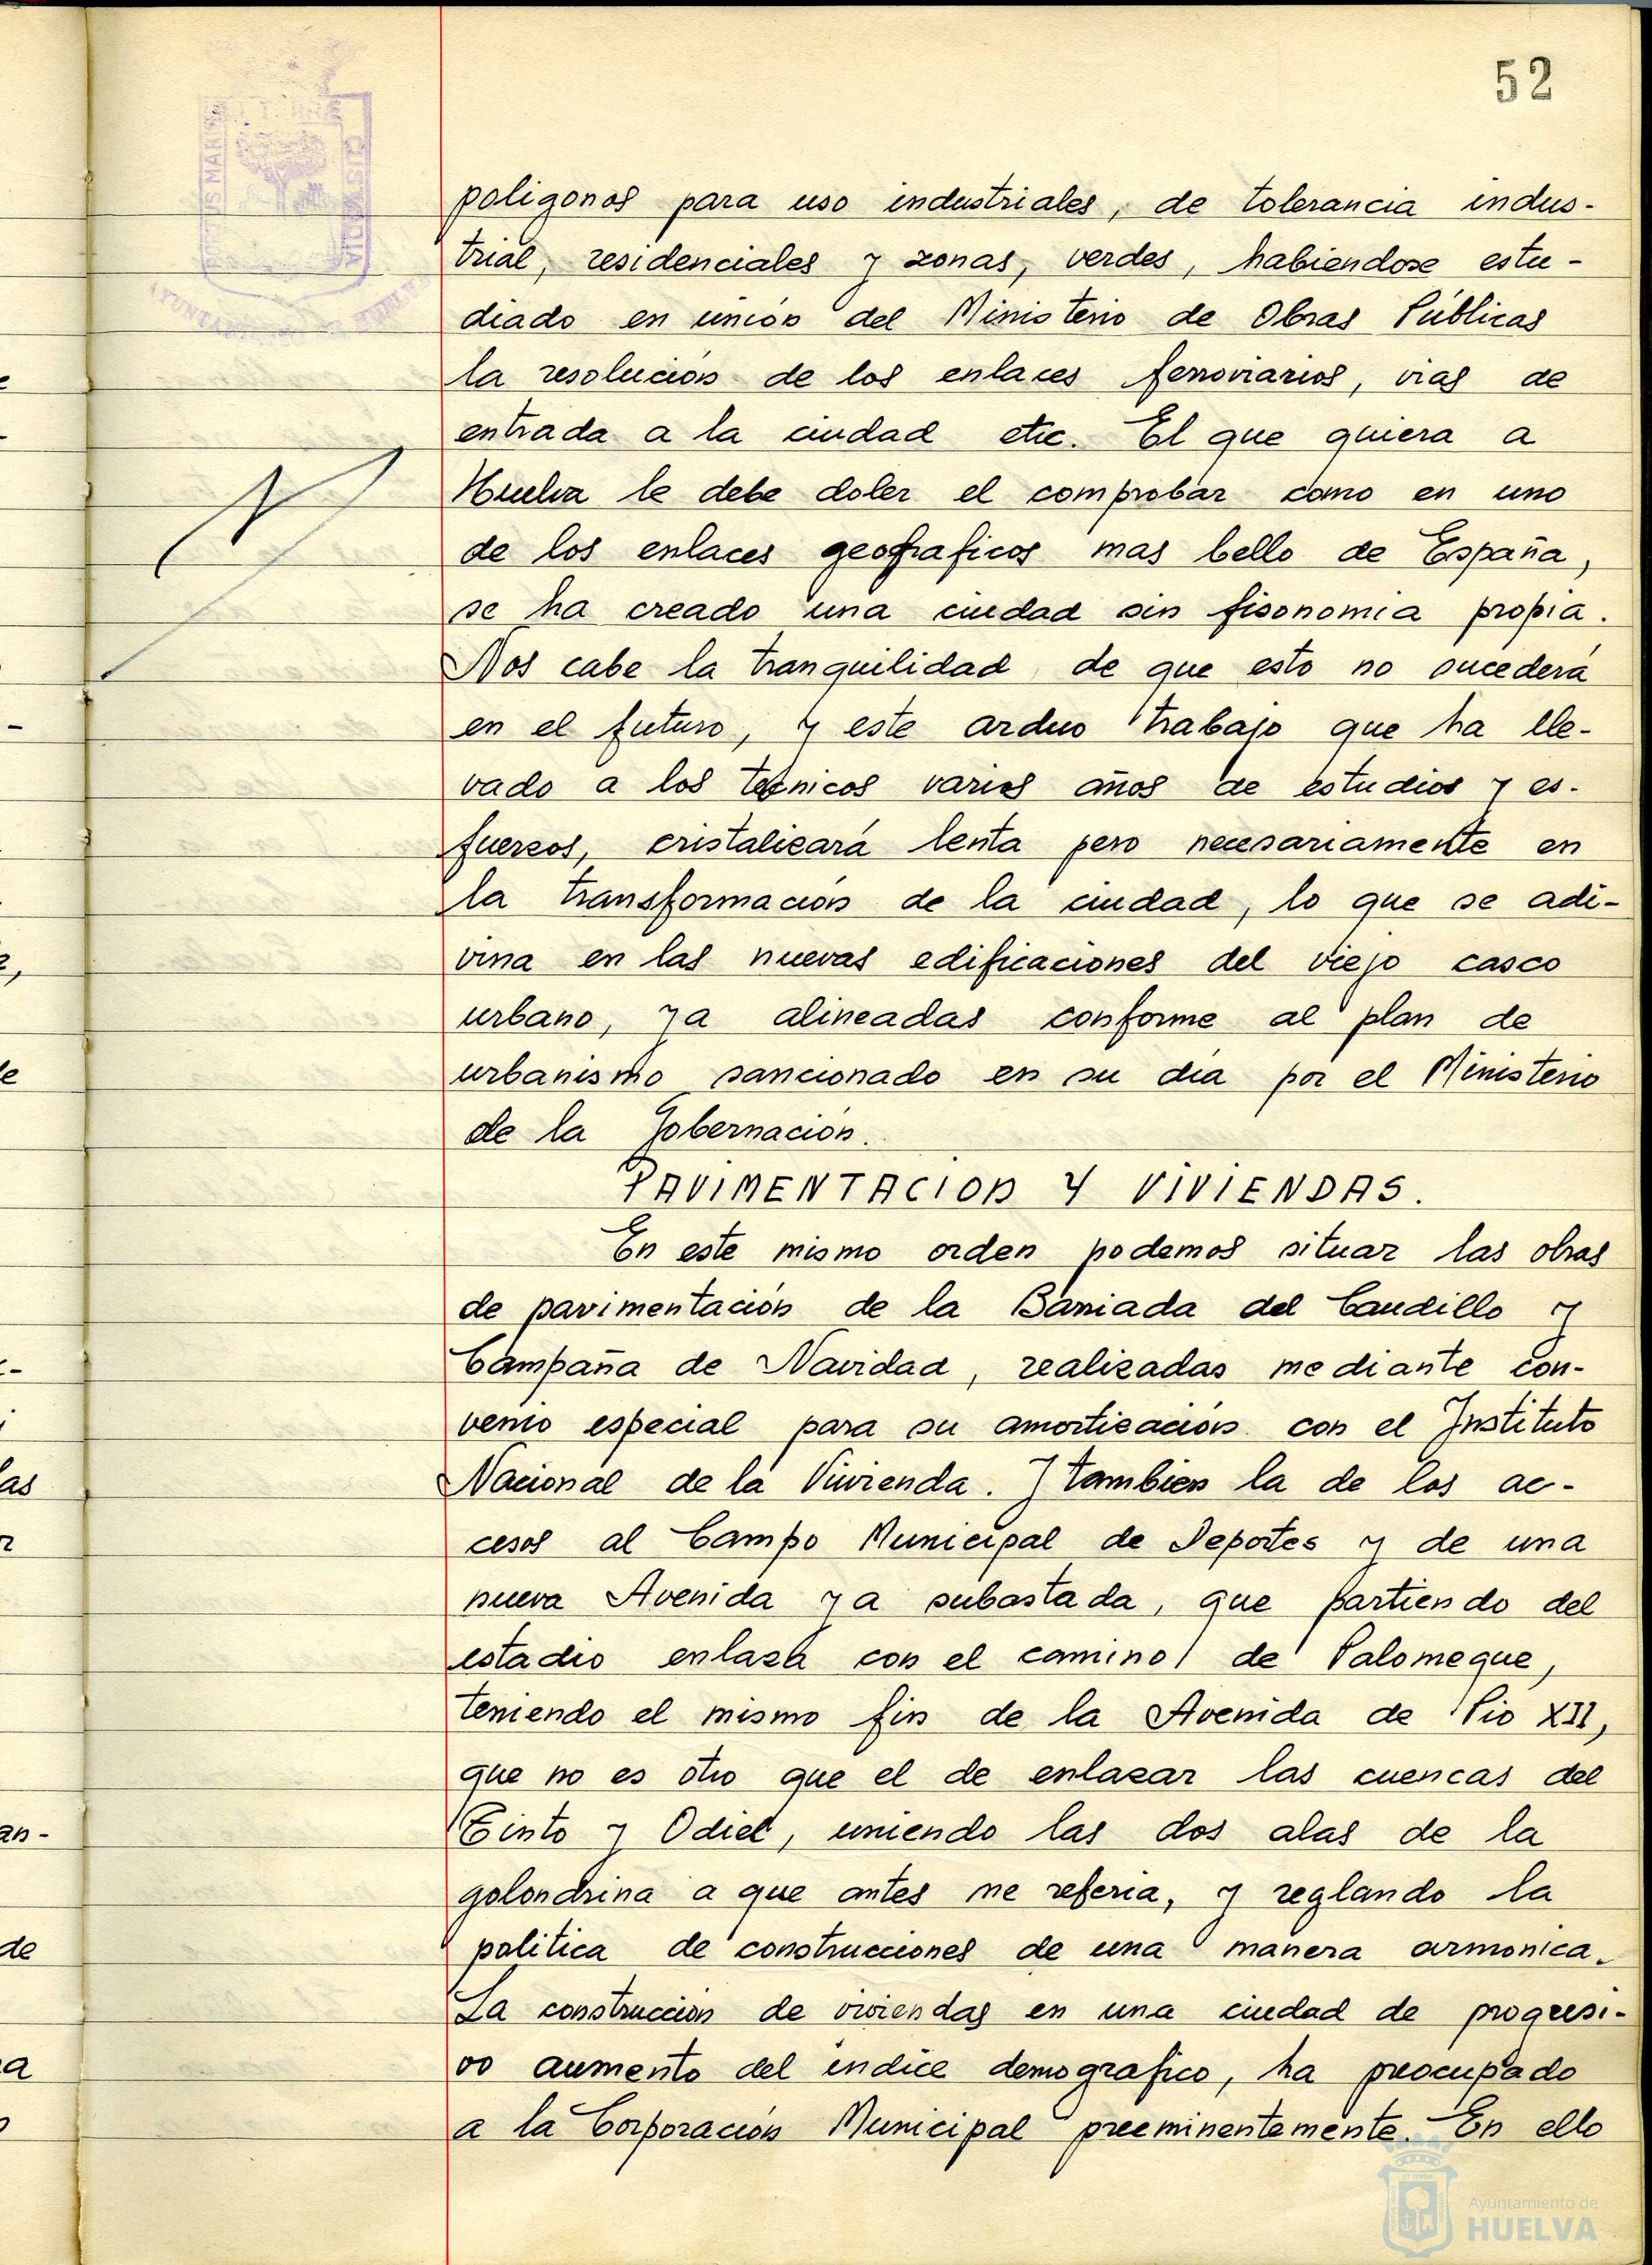 52
poligonos para uso industriales, de tolerancia indus-
trial, residenciales y zonas, verdes, habiendose estu-
diado en union del Ministerio de Obras Públicas
la resolución de los enlaces ferroviarios, vias de
entrada a la ciudad etc. El que quiera a
Huelva le debe doler el comprobar como en uno
de los enlaces geograficos mas bello de España,
se ha creado una ciudad sin fisonomia propia.
Nos cabe la tranquilidad de que esto no sucederá
en el futuro, y este arduo trabajo que ha lle-
vado a los tecnicos varios años de estudios y es-
fuerzos, cristalizará lenta pero necesariamente en
la transformacion de la ciudad, lo que se adi-
vina en las nuevas edificaciones del viejo casco
urbano, ya alineadas conforme al plan de
urbanismo sancionado en su dia por el Ministerio
de la Gobernación.
PAVIMENTACION Y VIVIENDAS.
En este mismo orden podemos situar las obras
de pavimentación de la Barriada del Caudillo y
Campaña de Navidad, realizadas mediante con-
venio especial para su amortizacion con el Instituto
Nacional de la Vivienda. Y tambien la de los ac-
cesos al Campo Municipal de Deportes y de una
nueva Avenida ya subastada, que partiendo del
estadio enlaza con el camino de Palomeque,
teniendo el mismo fin de la Avenida de Pio XII,
que no es otro que el de enlazar las cuencas del
Tinto y Odiel, uniendo las dos alas de la
golondrina a que antes me referia, y reglando la
politica de construcciones de una manera armonica.
La construccion de viviendas en una ciudad de progresi-
vo aumento del indice demografico, ha preocupado
a la Corporación Municipal preeminentemente. En ello
Ayuntamiento de
HUELVA